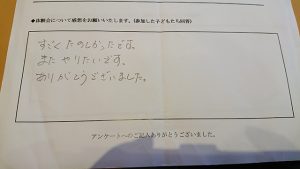 ◆体験会について感想をお願いいたします。(参加した子どもたち回答)
すごくたのしかったです。
またやりたいです。
ありがとうございました。
アンケートへのご記入ありがとうございました。